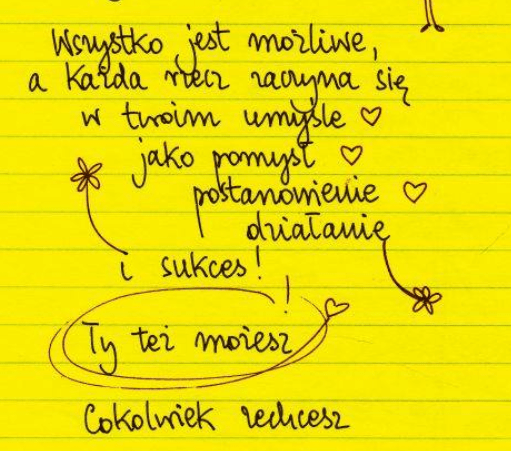 Wszystko jest możliwe,
a każda rzecz zaczyna się
w twoim umyśle
jako pomysł
postanowienie
działanie
i sukces!
Ty też możesz!
Cokolwiek zechcesz